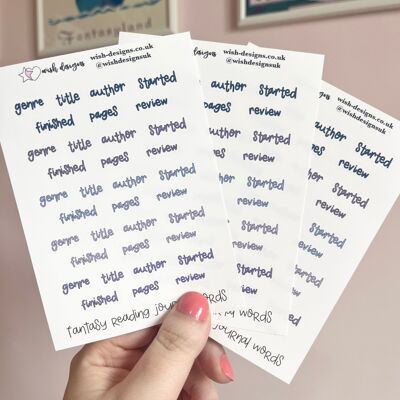 Fantasyland
wish designs
wish-designs.co.uk
@wishdesignsuk
genre title author started
finished pages review
genre title author started
finished pages review
genre title author started
finished pages review
genre title author started
finished pages review
genre title author started
finished pages review
FANTASY READING WORDS
wish-designs.co.uk
@wishdesignsuk
author started
review
started
review
started
review
started
review
started
review
WORDS
wish-designs.co.uk
@wishdesignsuk
started
review
started
review
started
review
started
review
started
review
WORDS